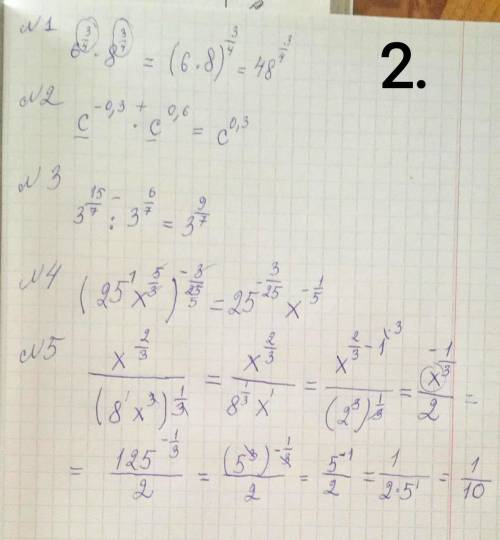 №1
6^{3/4} · 8^{3/4} = (6·8)^{3/4} = 48^{3/4}
2.
№2
c^{-0,3} · c^{0,6} = c^{0,3}
№3
3^{15/7} : 3^{6/7} = 3^{9/7}
№4
(25^1 x^{5/3})^{-3/25} = 25^{-3/25} x^{-1/5}
№5
x^{2/3} / (8^1 x^3)^{1/3} = x^{2/3} / 8^{1/3} x^1 = x^{2/3 - 1} / (2^3)^{1/3} = x^{-1/3} / 2 =
= 125^{-1/3} / 2 = (5^3)^{-1/3} / 2 = 5^{-1} / 2 = 1 / 2·5^1 = 1 / 10